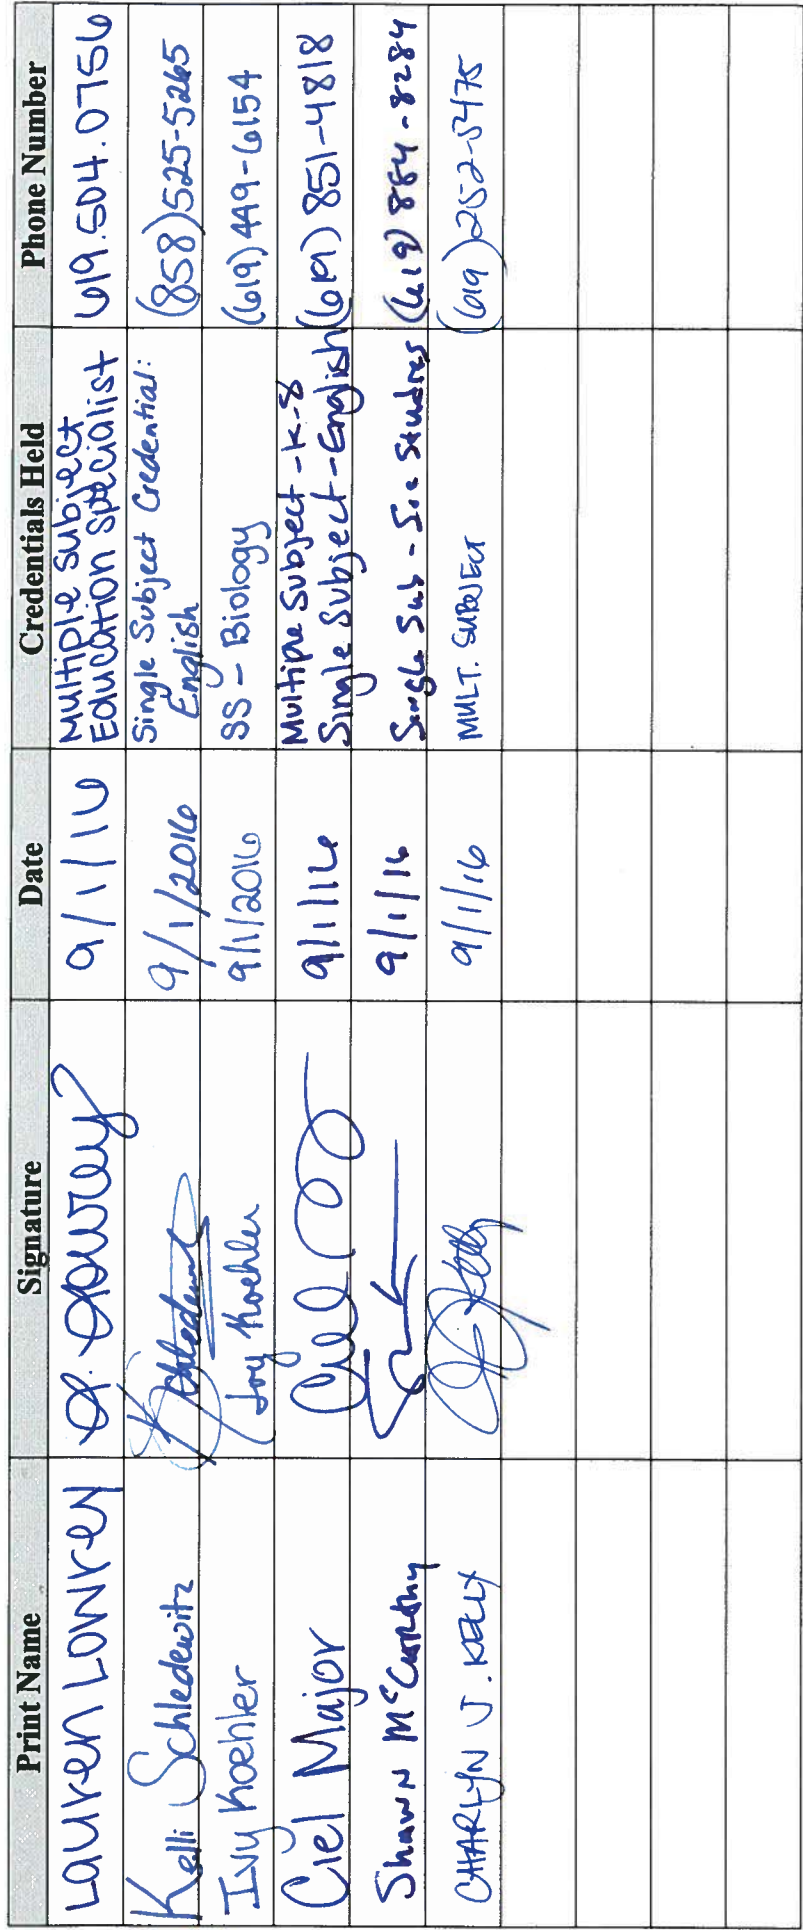 Print Name Signature Date Credentials Held Phone Number
Lauren Lowrey L. Lowrey 9/1/16 Multiple Subject 619.504.0756
Education Specialist
Kelli Schledewitz 9/1/2016 Single Subject Credential: (858)525-5265
English
Ivy Koehler Ivy Koehler 9/1/2016 SS - Biology (619)449-6154
Ciel Major 9/1/16 Multiple Subject - K-8 (619)851-4818
Single Subject - English
Shawn McCarthy 9/1/16 Single Sub - Soc Studies (619)884-8284
CHARLYN J. KELLY 9/1/16 MULT. SUBJECT (619)252-5475